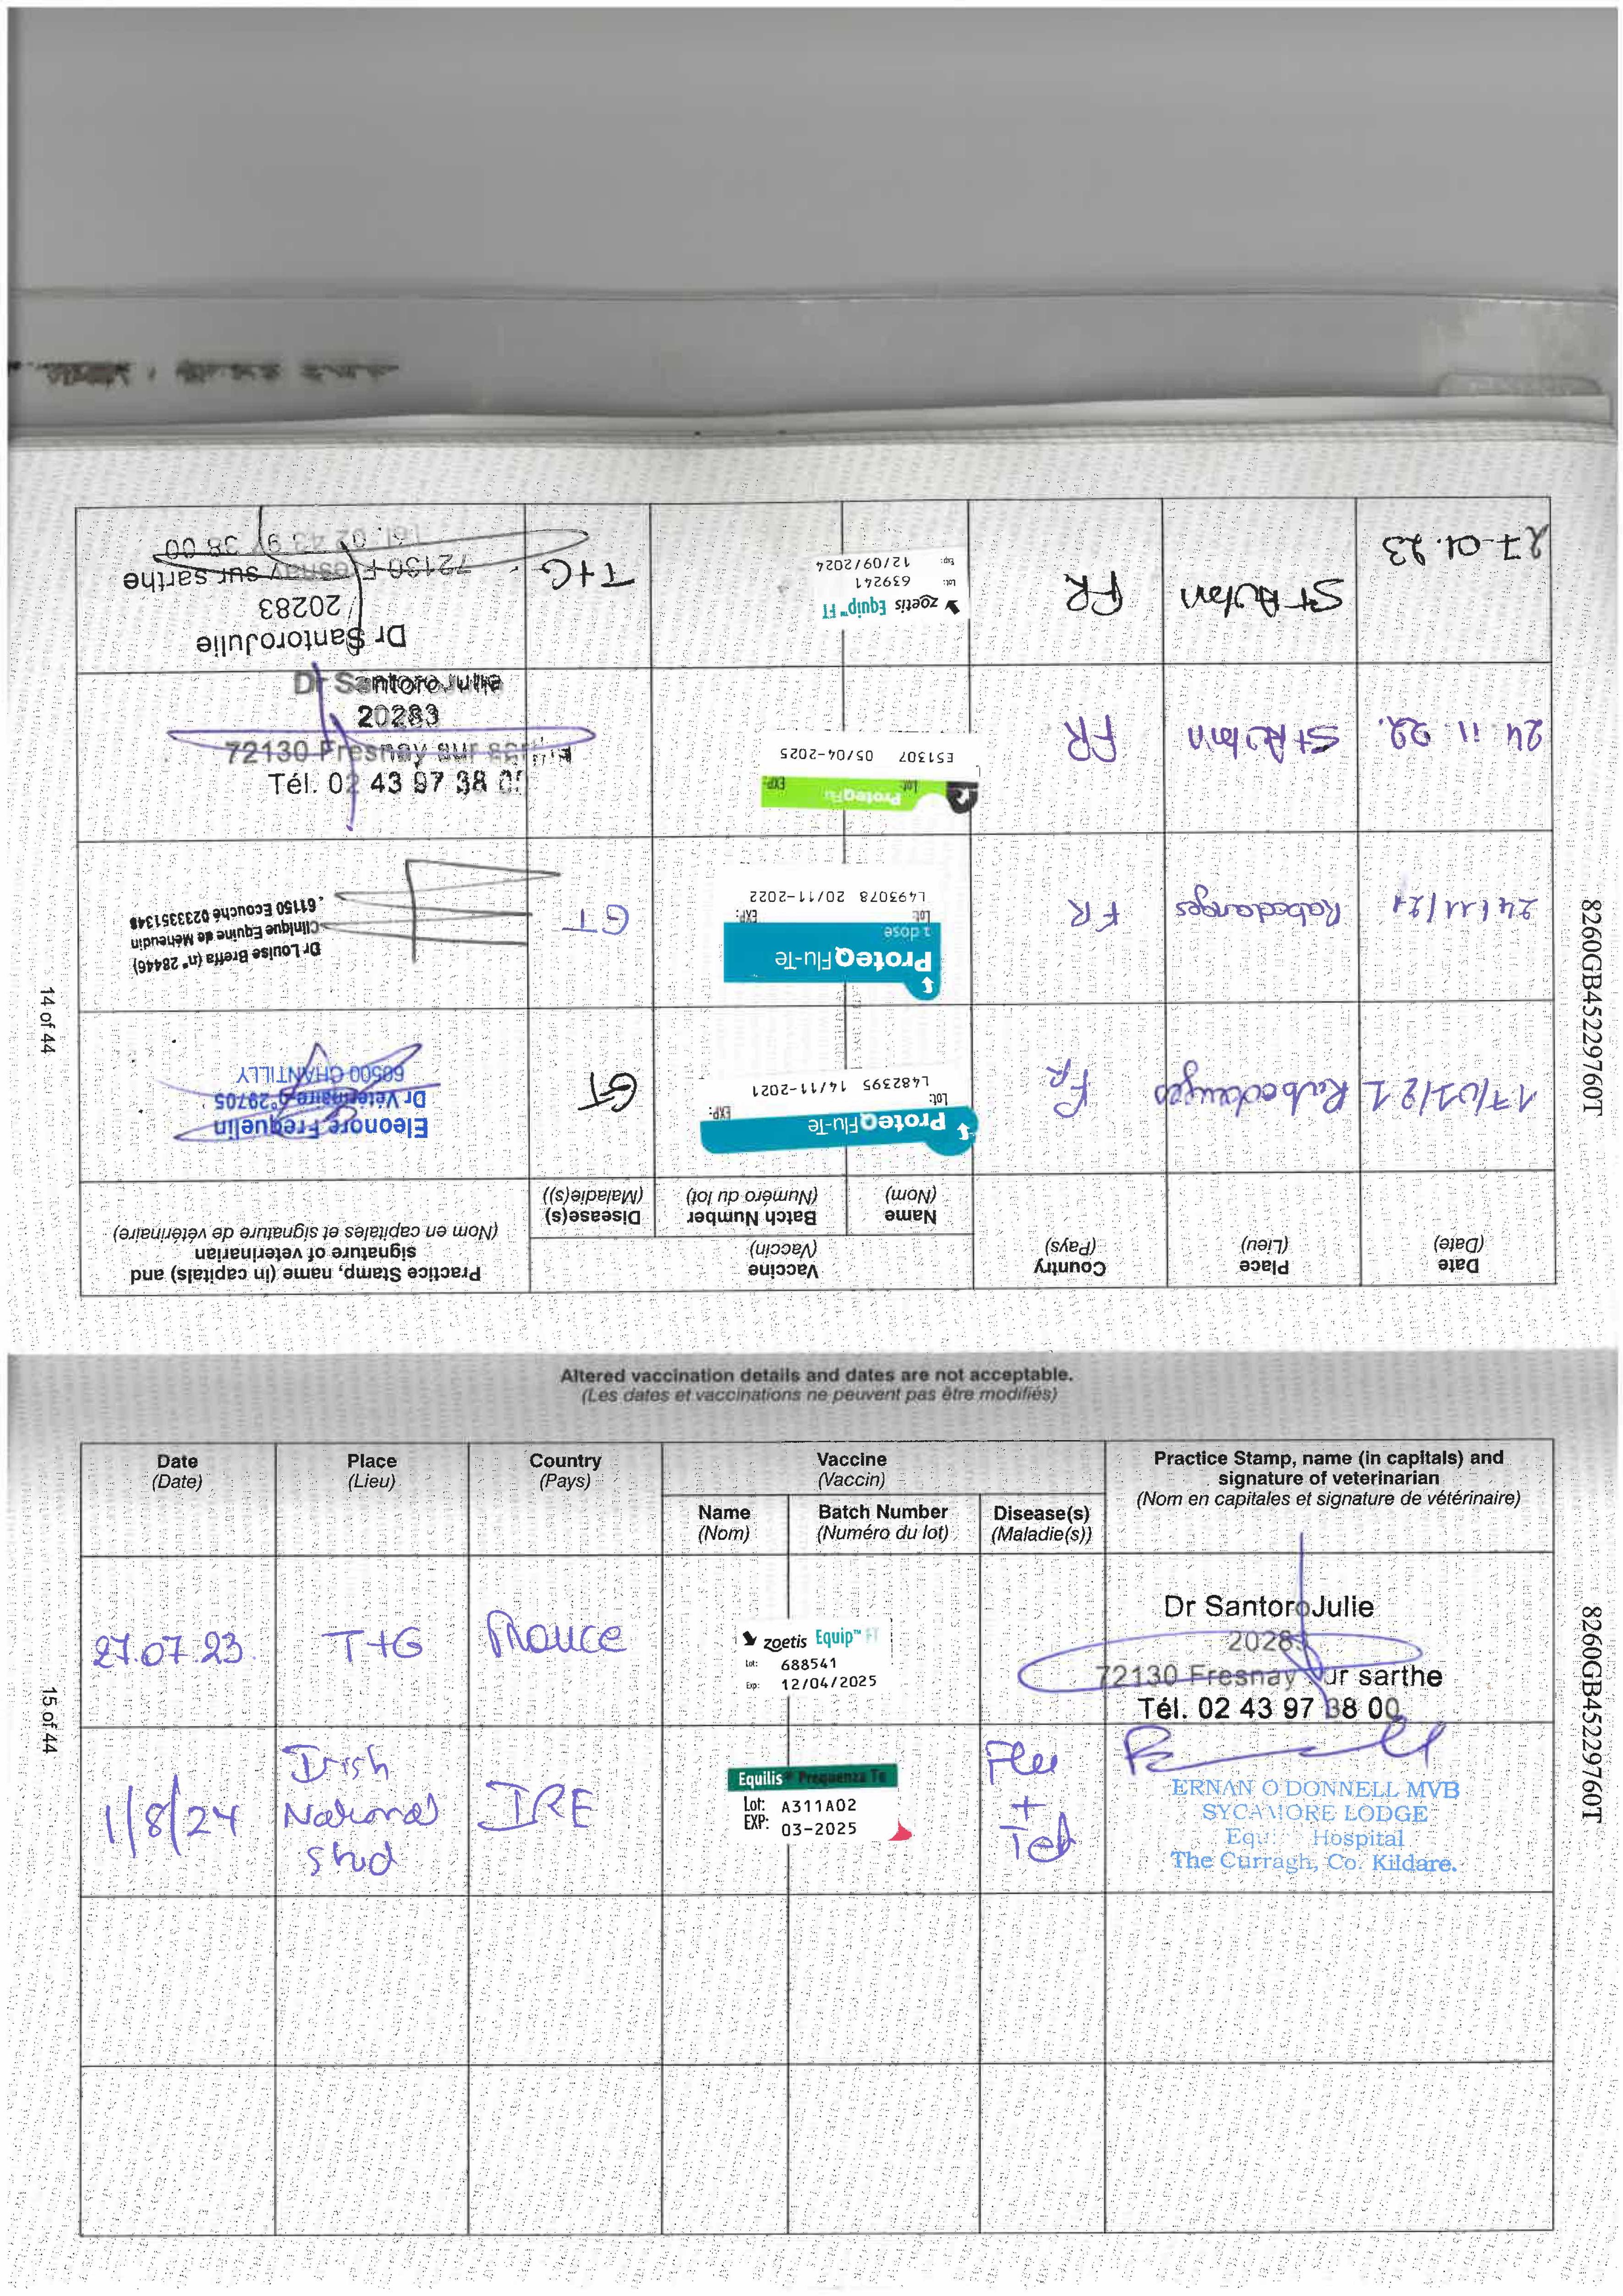 Date
(Date)
Place
(Lieu)
Country
(Pays)
Vaccine
(Vaccin)
Name
(Nom)
Batch Number
(Numéro du lot)
Disease(s)
(Maladie(s))
Practice Stamp, name (in capitals) and
signature of veterinarian
(Nom en capitales et signature de vétérinaire)
17/01/21
Rabodanges
FR
ProteqFlu-Te
Lot: EXP:
L482395 14/11-2021
GT
Eleonore Frequelin
Dr Vétérinaire n°29705
60500 CHANTILLY
24/11/21
Rabodanges
FR
ProteqFlu-Te
1 dose
Lot: EXP:
L493078 20/11-2022
GT
Dr Louise Breffa (n° 28446)
Clinique Equine de Méheudin
61150 Ecouché 0233351348
24 11 22.
St Aubin
FR
ProteqFlu
Lot: EXP:
E51307 05/04-2025
Dr Santoro Julie
20283
72130 Fresnay sur sarthe
Tél. 02 43 97 38 0
27.01.23
St Aubin
FR
zoetis Equip™ FT
Lot: 639241
Exp: 12/09/2024
T+G
Dr SantoroJulie
20283
72130 Fresnay sur sarthe
Tél. 02 43 97 38 00
14 of 44
8260GB45229760T
Altered vaccination details and dates are not acceptable.
(Les dates et vaccinations ne peuvent pas être modifiés)
Date
(Date)
Place
(Lieu)
Country
(Pays)
Vaccine
(Vaccin)
Name
(Nom)
Batch Number
(Numéro du lot)
Disease(s)
(Maladie(s))
Practice Stamp, name (in capitals) and
signature of veterinarian
(Nom en capitales et signature de vétérinaire)
27.07.23.
T+G
France
zoetis Equip™ FT
Lot: 688541
Exp: 12/04/2025
Dr SantoroJulie
2028
72130 Fresnay sur sarthe
Tél. 02 43 97 38 00
1/8/24
Irish
National
Stud
IRE
Equilis® Prequenza Te
Lot: A311A02
EXP: 03-2025
Flu
+
Tet
ERNAN O DONNELL MVB
SYCAMORE LODGE
Equ Hospital
The Curragh, Co. Kildare.
15 of 44
8260GB45229760T